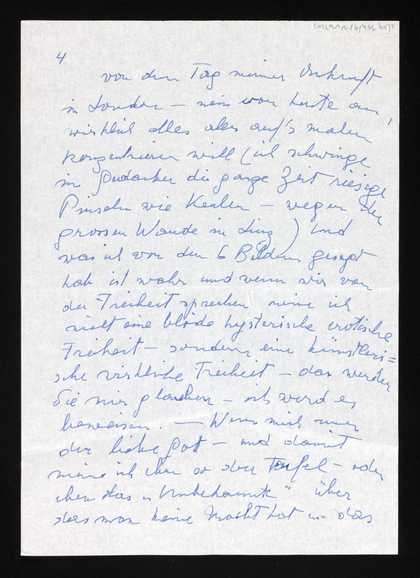 4
von dem Tag meiner Ankunft
in London – nein von heute an
wirklich alles aber auf's malen
konzentrieren will (ich schwinge
in Gedanken die ganze Zeit riesige
Pinseln wie Keulen – wegen der
grossen Wände in ) Und
was ich von den 6 Bildern gesagt
hab ist wahr und wenn wir von
der Freiheit sprechen meine ich
nicht eine blöde hysterische erotische
Freiheit – sondern eine künstleri=
sche wirkliche Freiheit – das werden
Sie mir glauben – ich werd es
beweisen. – Wenn mich nur
der liebe Gott – und damit
meine ich eben so den Teufel – oder
eben das „Unbekannte" über
das man keine Macht hat – das